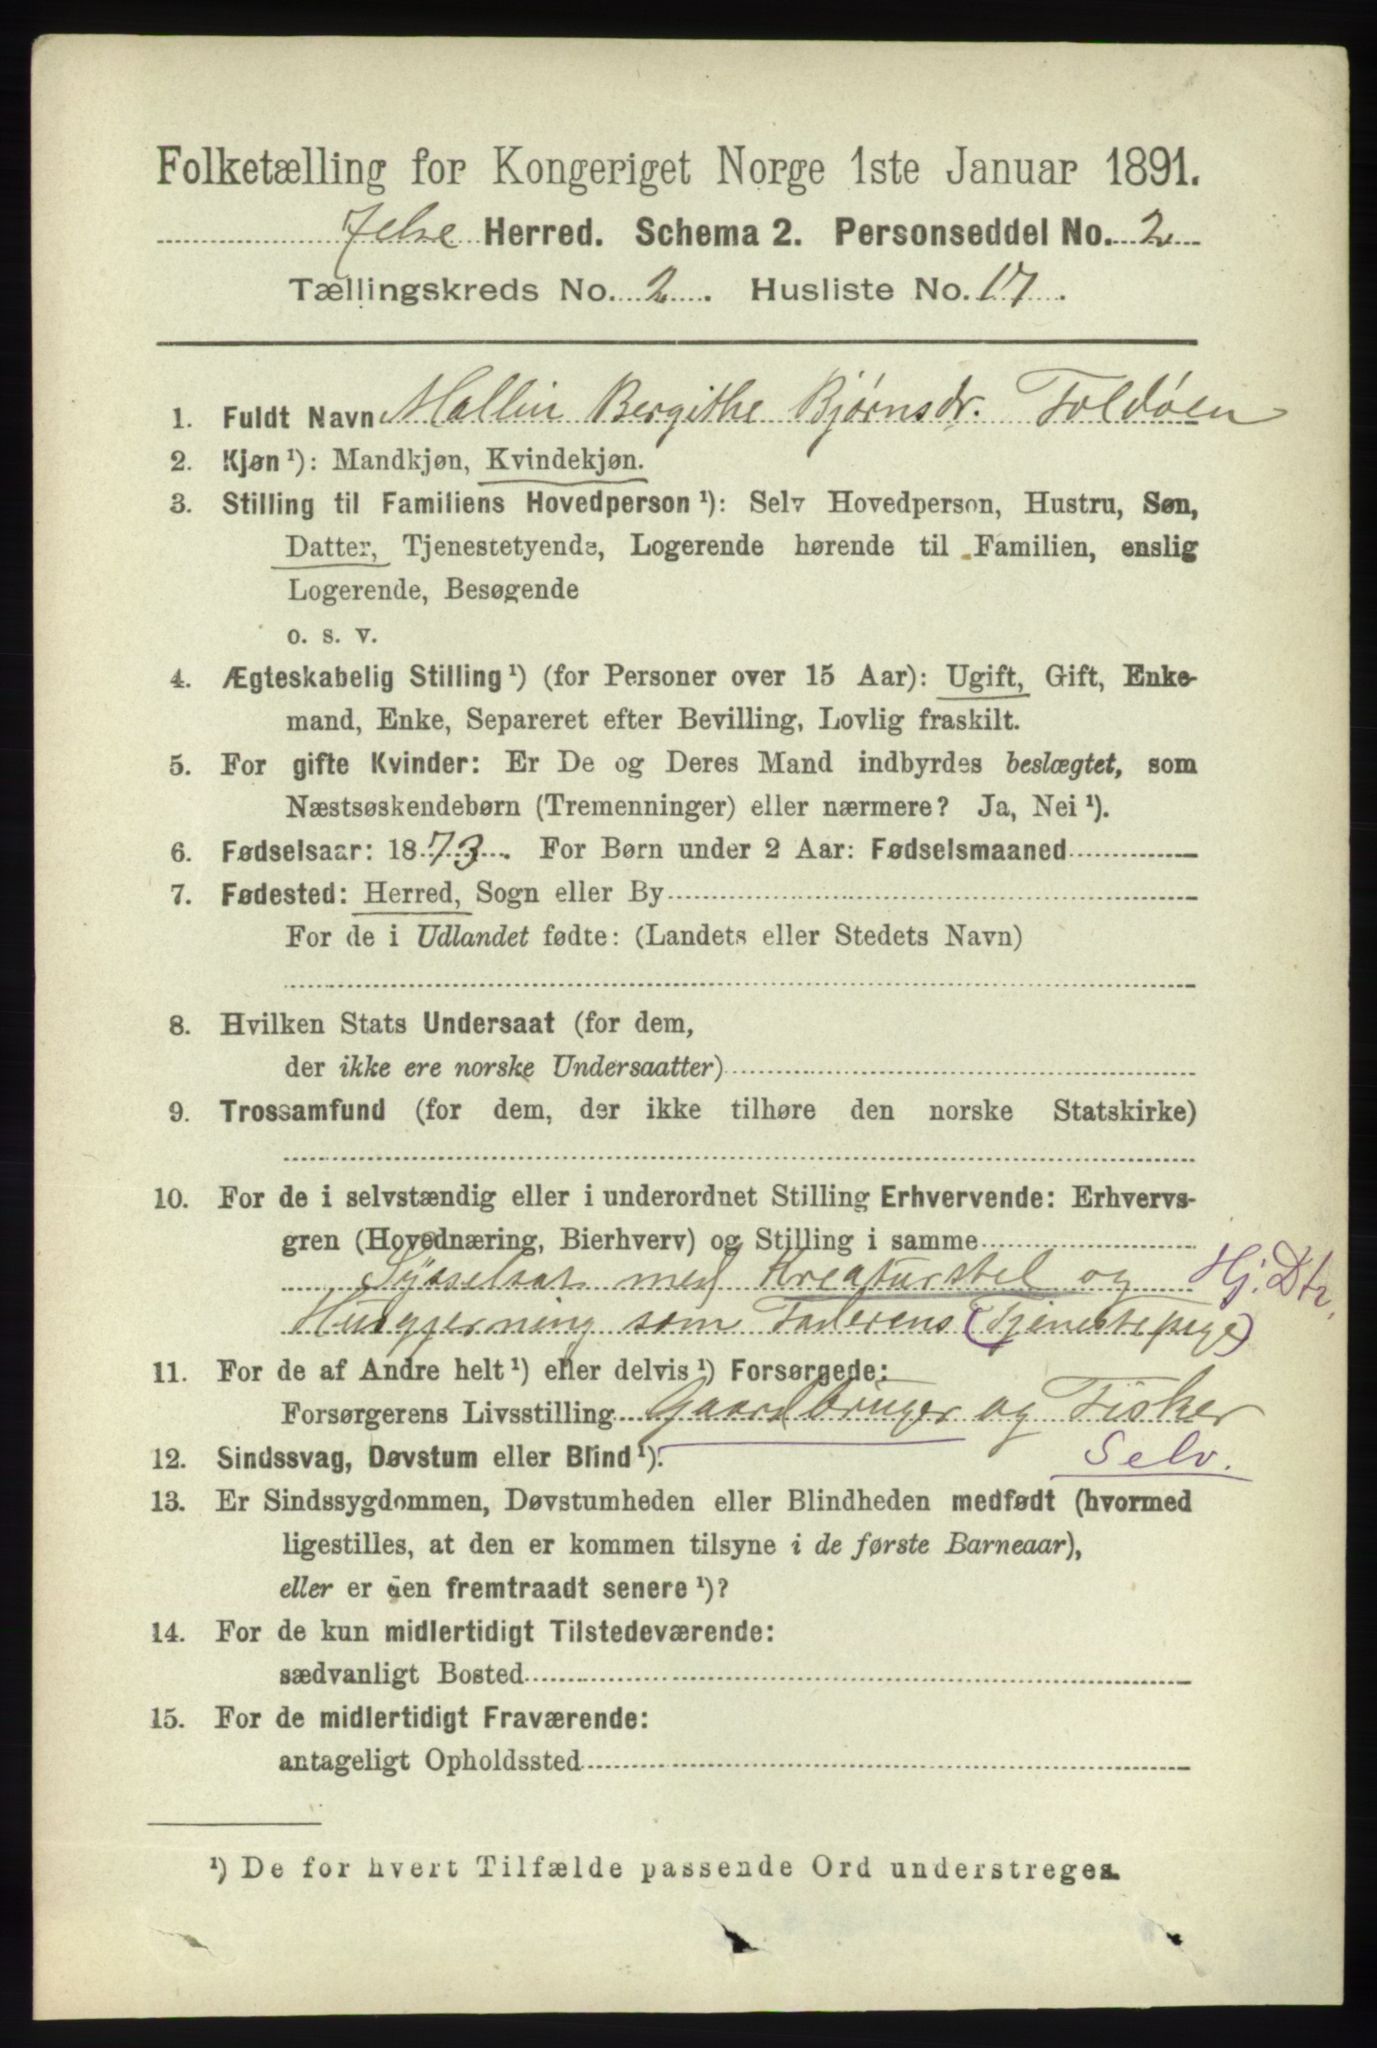 Folketælling for Kongeriget Norge 1ste Januar 1891.
Jelse Herred. Schema 2. Personseddel No. 2
Tællingskreds No. 2. Husliste No. 17.
1. Fuldt Navn Mallin Bergithe Bjørnsdr. Foldøen
2. Kjøn ¹): Mandkjøn, Kvindekjøn.
3. Stilling til Familiens Hovedperson ¹): Selv Hovedperson, Hustru, Søn,
Datter, Tjenestetyende, Logerende hørende til Familien, enslig
Logerende, Besøgende
o. s. v.
4. Ægteskabelig Stilling ¹) (for Personer over 15 Aar): Ugift, Gift, Enke-
mand, Enke, Separeret efter Bevilling, Lovlig fraskilt.
5. For gifte Kvinder: Er De og Deres Mand indbyrdes beslægtet, som
Næstsøskendebørn (Tremenninger) eller nærmere? Ja, Nei ¹).
6. Fødselsaar: 1873. For Børn under 2 Aar: Fødselsmaaned
7. Fødested: Herred, Sogn eller By
For de i Udlandet fødte: (Landets eller Stedets Navn)
8. Hvilken Stats Undersaat (for dem,
der ikke ere norske Undersaatter)
9. Trossamfund (for dem, der ikke tilhøre den norske Statskirke)
10. For de i selvstændig eller i underordnet Stilling Erhvervende: Erhvervs-
gren (Hovednæring, Bierhverv) og Stilling i samme
Sysselsat med Kreaturstel og Hj. Dtr.
Husgjerning som Faderens (Tjenestepige)
11. For de af Andre helt ¹) eller delvis ¹) Forsørgede:
Forsørgerens Livsstilling Gaardbruger og Fisker
12. Sindssvag, Døvstum eller Blind ¹). Selv.
13. Er Sindssygdommen, Døvstumheden eller Blindheden medfødt (hvormed
ligestilles, at den er kommen tilsyne i de første Barneaar),
eller er den fremtraadt senere ¹)?
14. For de kun midlertidigt Tilstedeværende:
sædvanligt Bosted
15. For de midlertidigt Fraværende:
antageligt Opholdssted
¹) De for hvert Tilfælde passende Ord understreges.